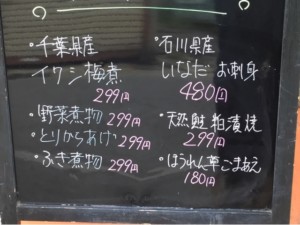 ・千葉県産
イワシ梅煮
299円
・野菜煮物 299円
・とりからあげ 299円
・ふき煮物 299円
・石川県産
いなだ お刺身
480円
・天然鮭 粕漬焼
299円
・ほうれん草ごまあえ
180円